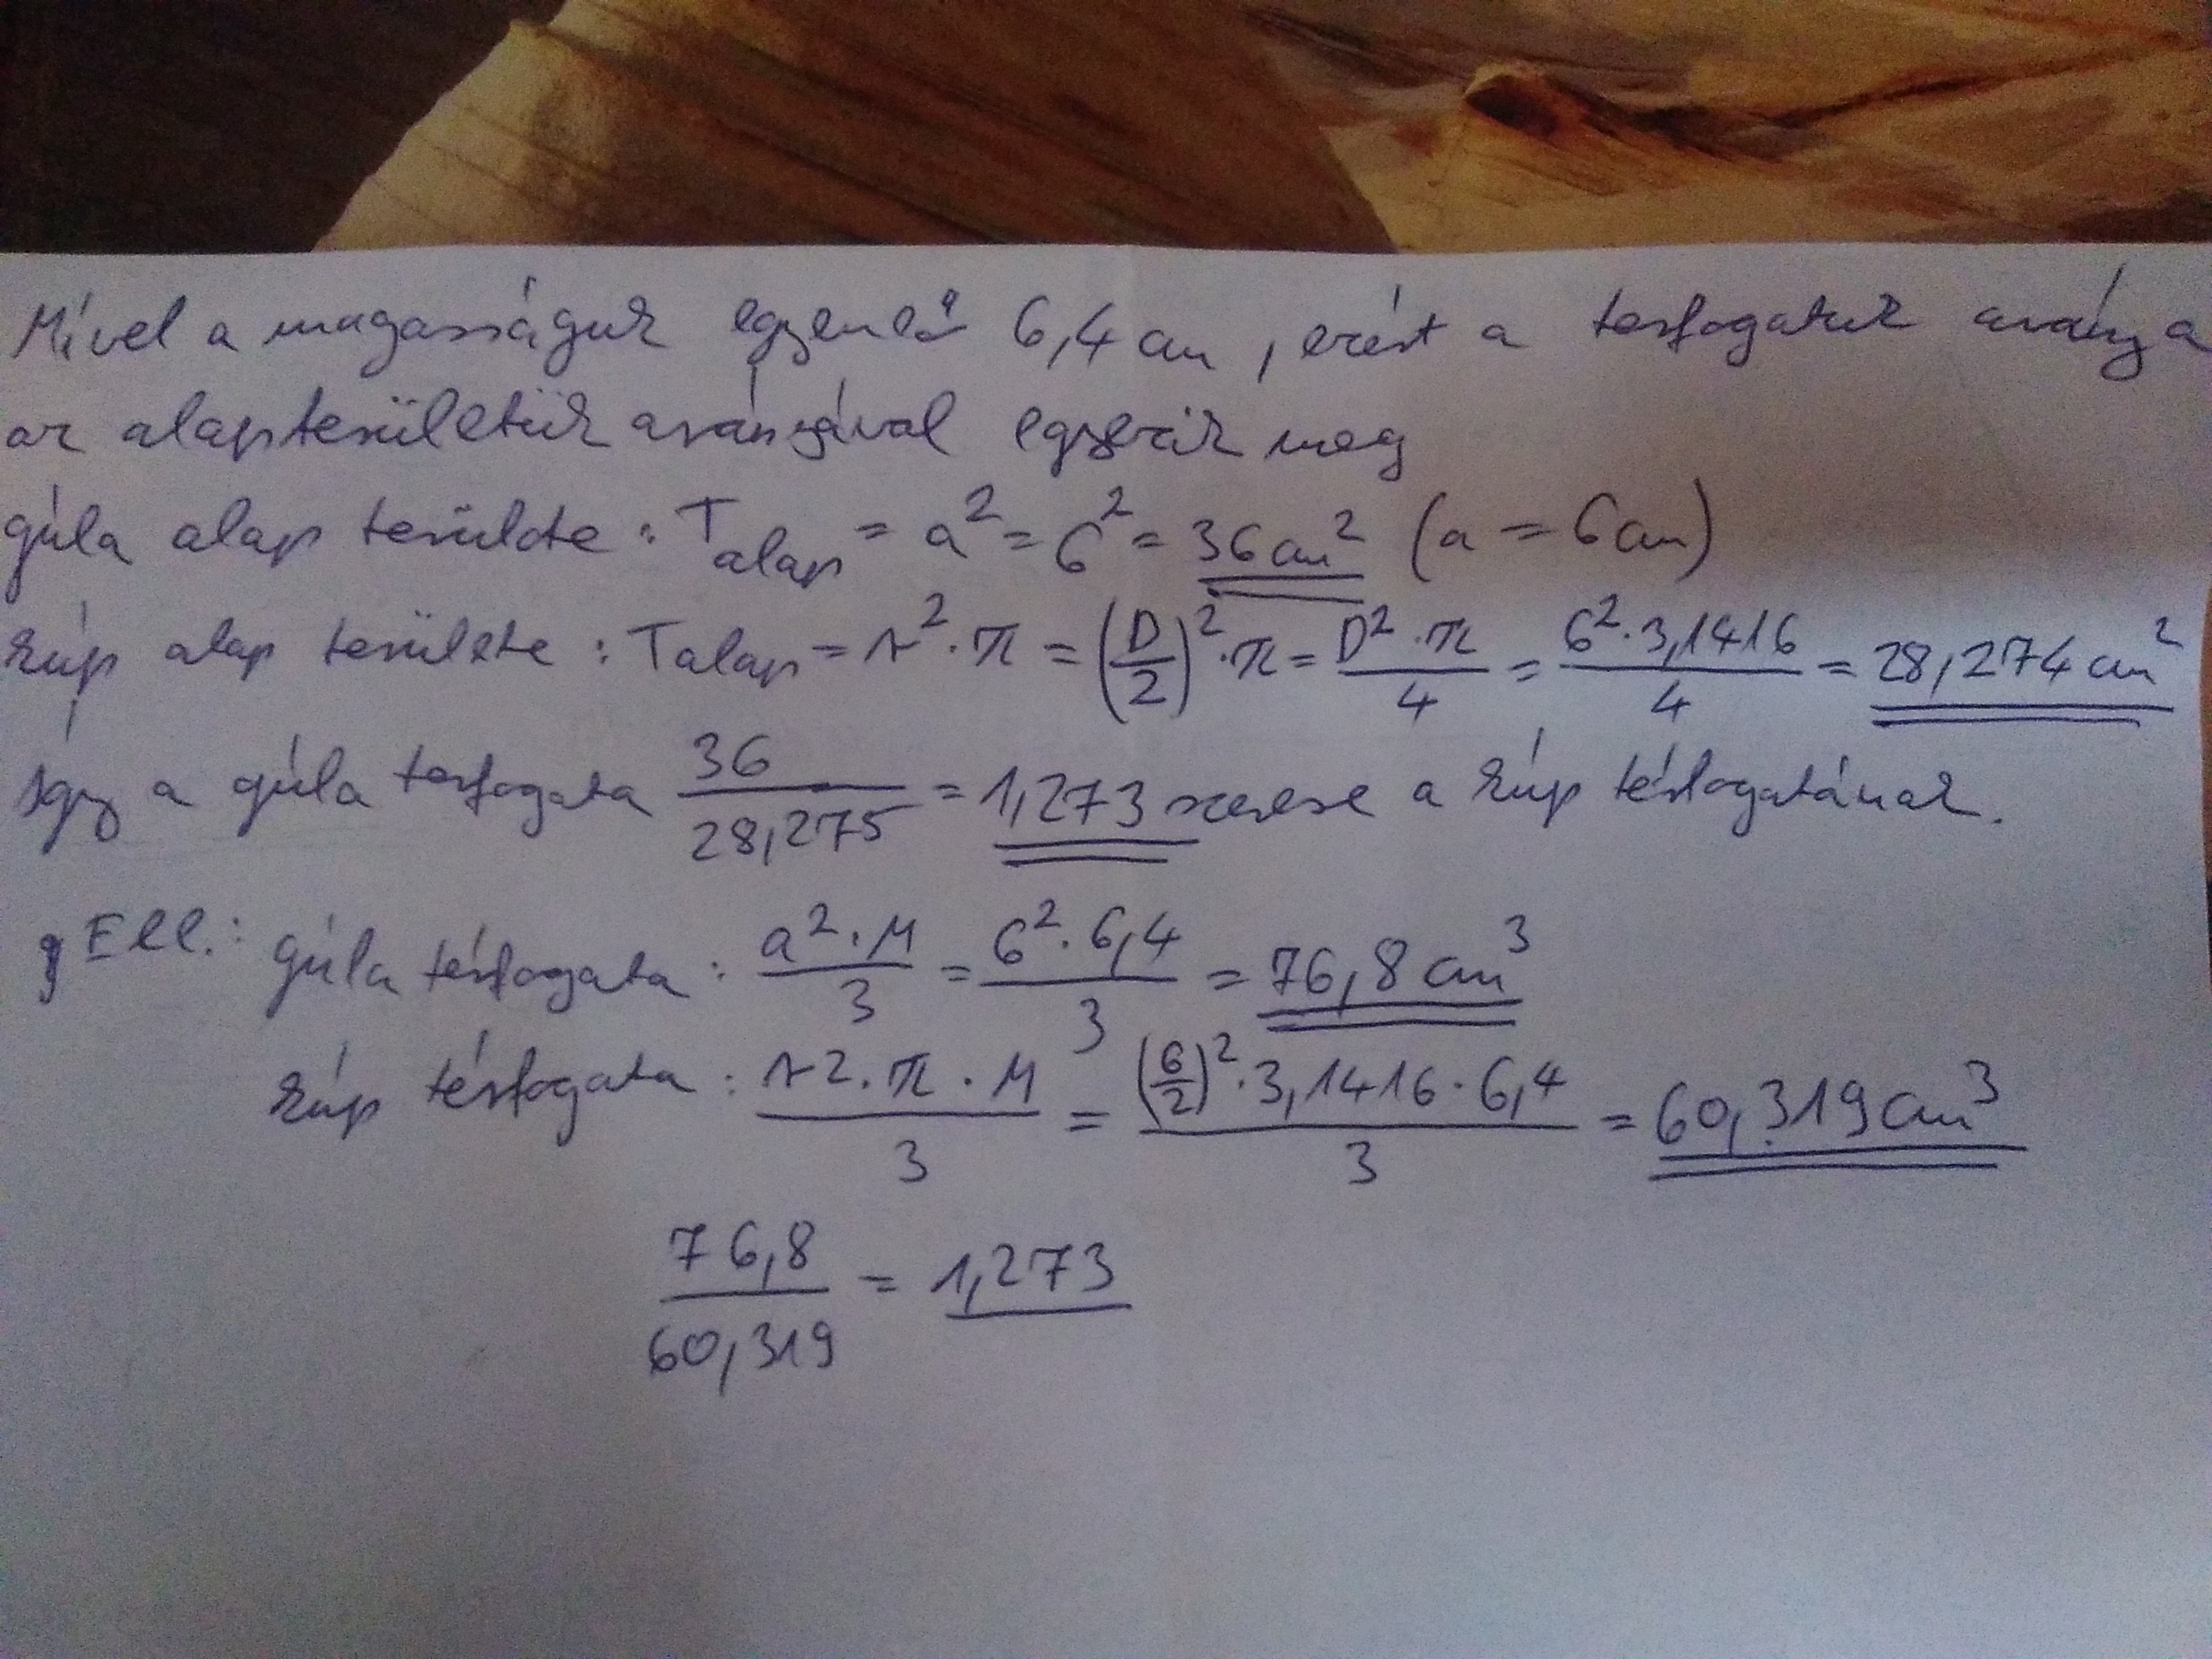 Mivel a magasságuk egyenlő 6,4 cm, ezért a térfogatuk aránya
az alapterületük arányával egyezik meg
gúla alap területe : T alap = a² = 6² = 36 cm² (a = 6 cm)
kúp alap területe : T alap = r² · π = (D/2)² · π = D² · π / 4 = 6² · 3,1416 / 4 = 28,274 cm²
így a gúla térfogata 36 / 28,275 = 1,273 szerese a kúp térfogatának.
Ell.: gúla térfogata : a² · M / 3 = 6² · 6,4 / 3 = 76,8 cm³
kúp térfogata : r2 · π · M / 3 = (6/2)² · 3,1416 · 6,4 / 3 = 60,319 cm³
76,8 / 60,319 = 1,273